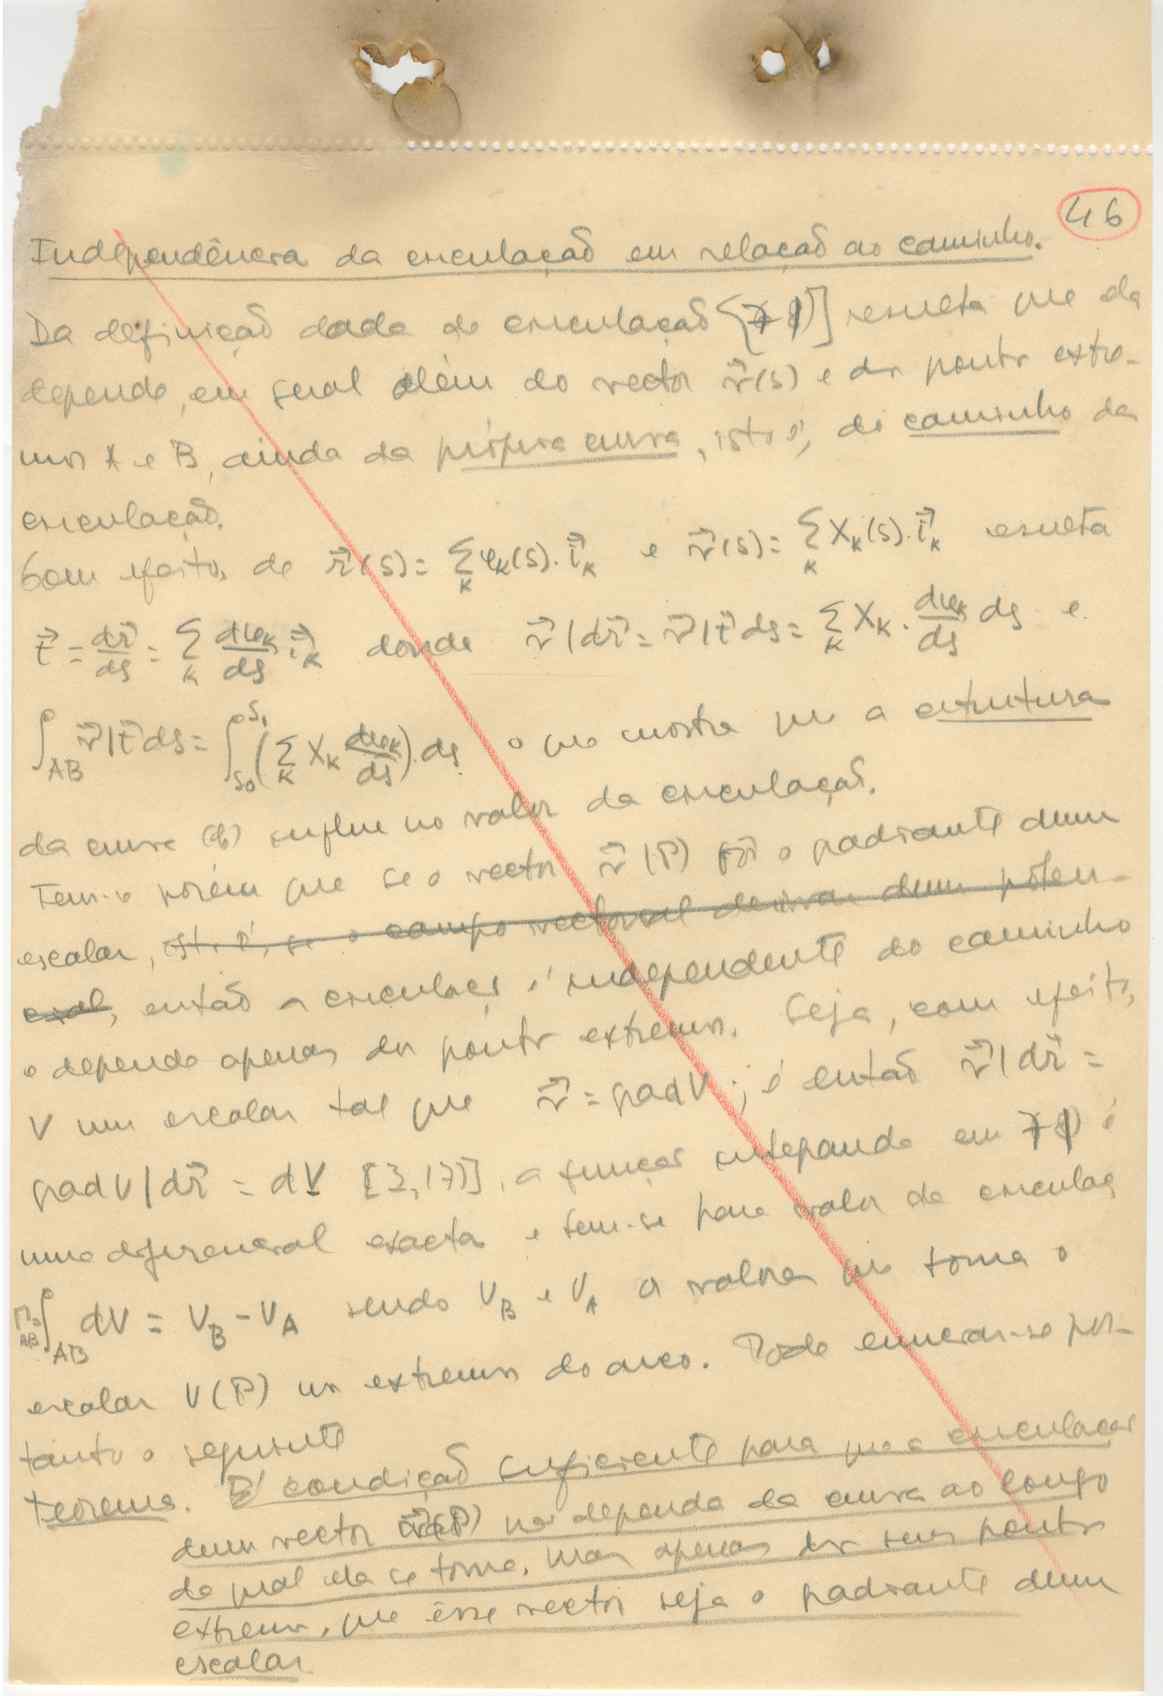 46
Independência da circulação em relação ao caminho.
Da definição dada de circulação [7 1)] resulta que ela
depende, em geral além do vector v⃗(s) e dos pontos extre-
mos A e B, ainda da própria curva, isto é, do caminho da
circulação.
Com efeito, de r⃗(s) = Σ_k φ_k(s). i⃗_k e v⃗(s) = Σ_k X_k(s). i⃗_k resulta
t⃗ = dr⃗/ds = Σ_k dφ_k/ds i⃗_k donde v⃗|dr⃗ = v⃗|t⃗ ds = Σ_k X_k. dφ_k/ds ds e
∫_AB v⃗|t⃗ ds = ∫_{s₀}^{s₁} (Σ_k X_k dφ_k/ds). ds o que mostra que a estrutura
da curva influe no valor da circulação.
Tem-se porém que se o vector v⃗(P) fôr o gradiente dum
escalar, isto é, se o campo vectorial deriva dum poten-
cial, então a circulação é independente do caminho
e depende apenas dos pontos extremos. Seja, com efeito,
V um escalar tal que v⃗ = grad V; é então v⃗|dr⃗ =
grad V|dr⃗ = dV [3, 17)], a função integranda em 7 1) é
uma diferencial exacta e tem-se para valor da circulação
∫_AB dV = V_B - V_A sendo V_B e V_A os valores que toma o
escalar V(P) nos extremos do arco. Pode enunciar-se por-
tanto o seguinte
teorema. É condição suficiente para que a circulação
dum vector v⃗(P) não dependa da curva ao longo
da qual ela se tome, mas apenas dos seus pontos
extremos, que êsse vector seja o gradiente dum
escalar